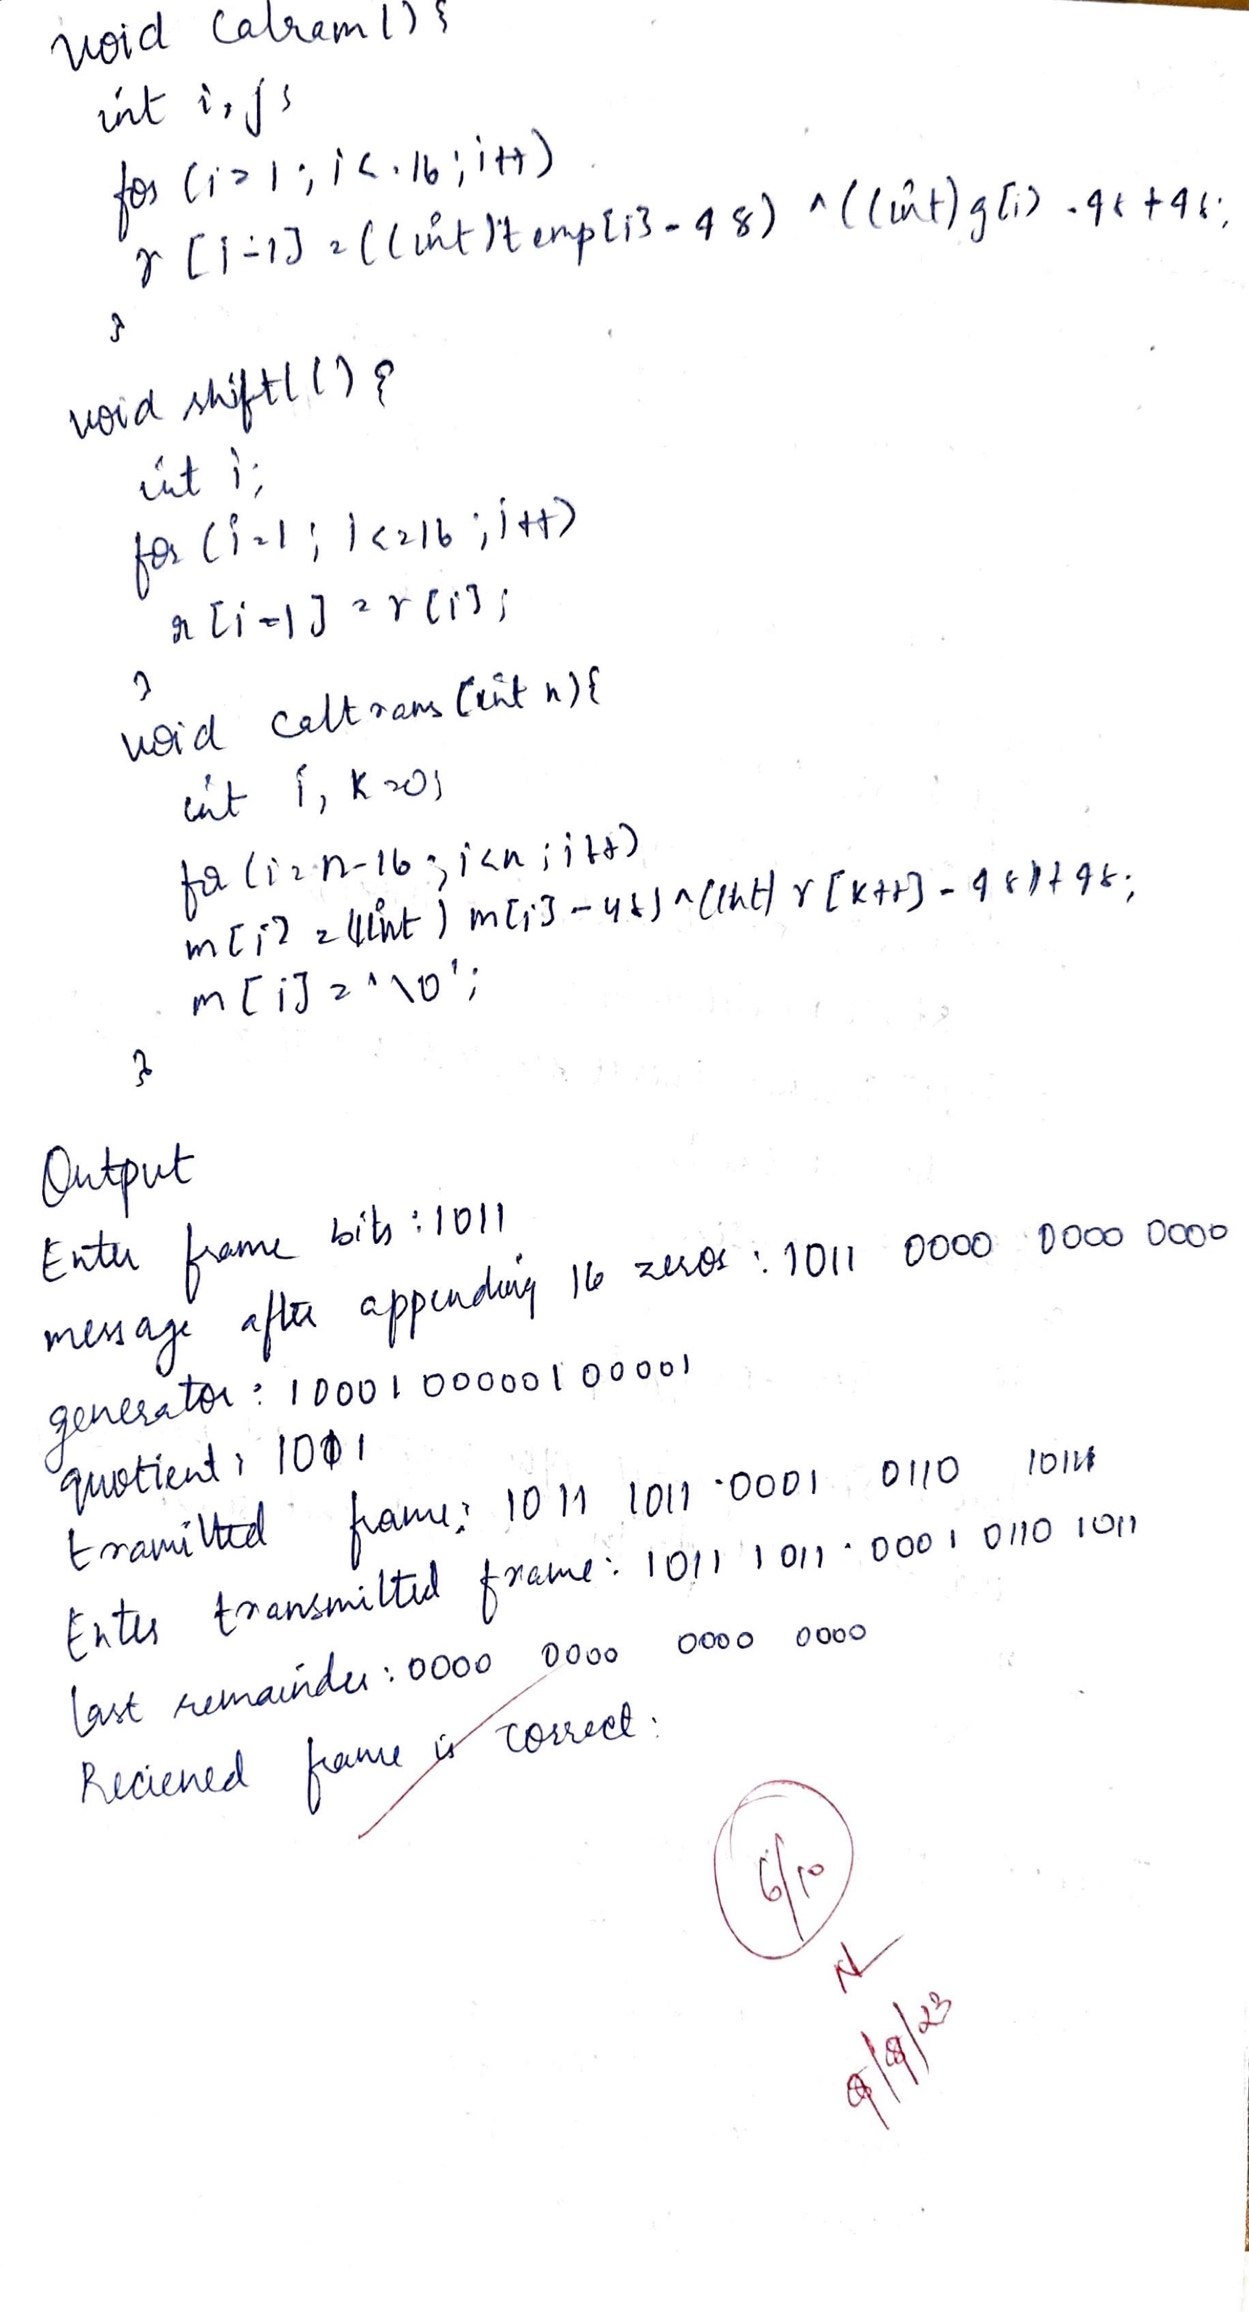 void calram() {
int i, j;
for (i=1; i<.16; i++)
r[i-1] = ((int)temp[i]-48) ^ ((int)g[i) -48 +48;
}
void shiftl() {
int i;
for (i=1; i<=16; i++)
r[i-1] = r[i];
}
void caltrans(int n){
int i, k=0;
for (i=n-16; i<n; i++)
m[i] = ((int) m[i]-48) ^ (int) r[k++] - 48) + 48;
m[i] = '\0';
}
Output
Enter frame bits : 1011
message after appending 16 zeros : 1011 0000 0000 0000
generator : 10001000000100001
quotient : 1011
tramitted frame: 1011 1011 0001 0110 1011
Enter transmitted frame : 1011 1011 0001 0110 1011
last remainder : 0000 0000 0000 0000
Reciened frame is correct.
6/10
9/9/23